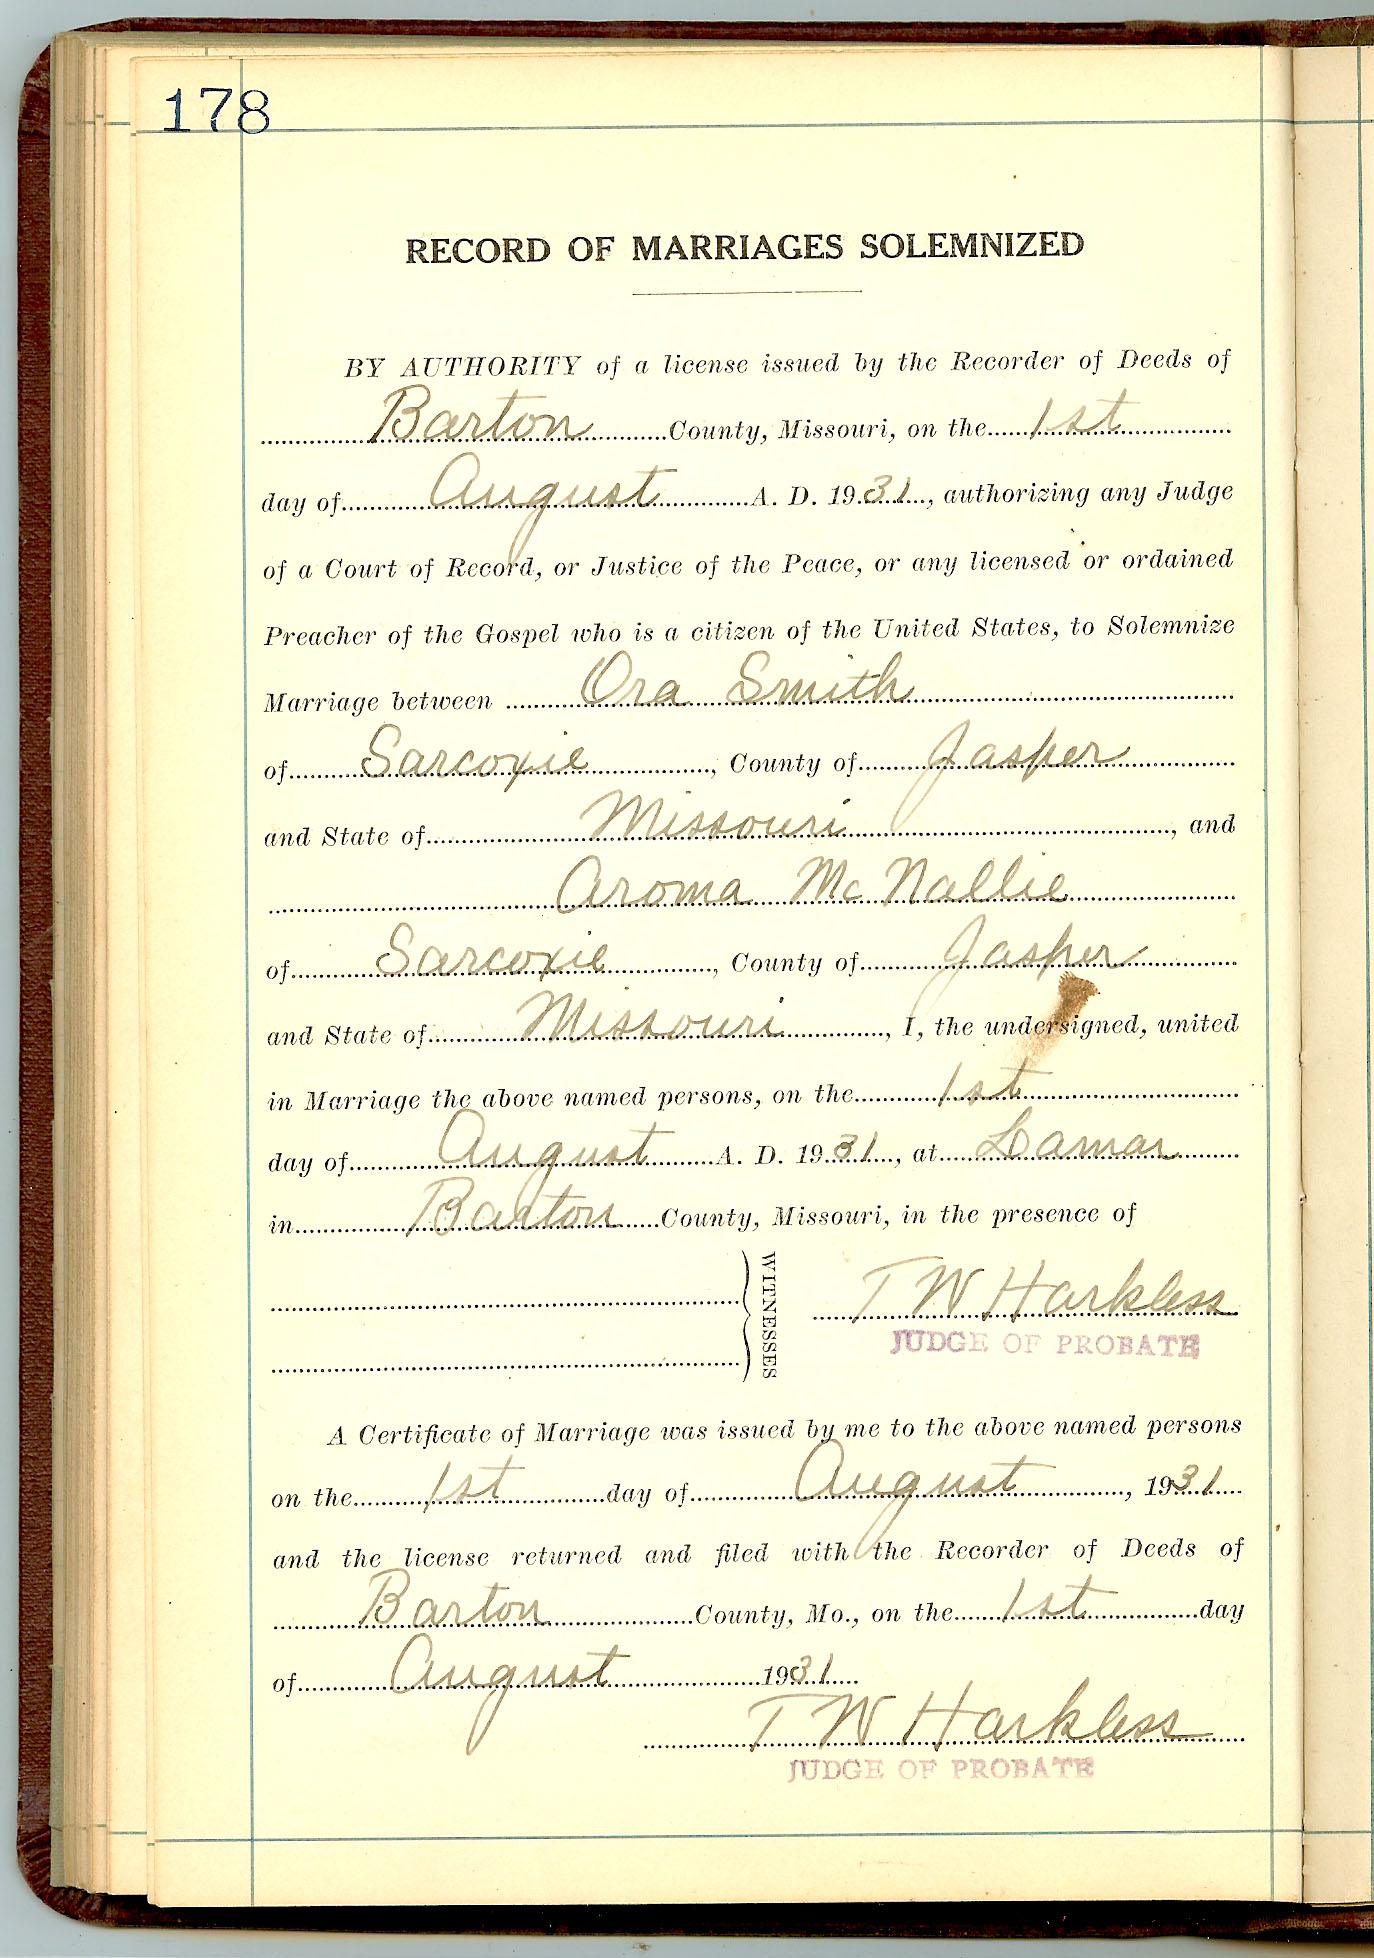 178
RECORD OF MARRIAGES SOLEMNIZED
BY AUTHORITY of a license issued by the Recorder of Deeds of
Barton County, Missouri, on the 1st
day of August A. D. 1931, authorizing any Judge
of a Court of Record, or Justice of the Peace, or any licensed or ordained
Preacher of the Gospel who is a citizen of the United States, to Solemnize
Marriage between Ora Smith
of Sarcoxie, County of Jasper
and State of Missouri, and
Aroma McNallie
of Sarcoxie, County of Jasper
and State of Missouri, I, the undersigned, united
in Marriage the above named persons, on the 1st
day of August A. D. 1931, at Lamar
in Barton County, Missouri, in the presence of
WITNESSES
T W Harkless
JUDGE OF PROBATE
A Certificate of Marriage was issued by me to the above named persons
on the 1st day of August, 1931
and the license returned and filed with the Recorder of Deeds of
Barton County, Mo., on the 1st day
of August 1931
T W Harkless
JUDGE OF PROBATE